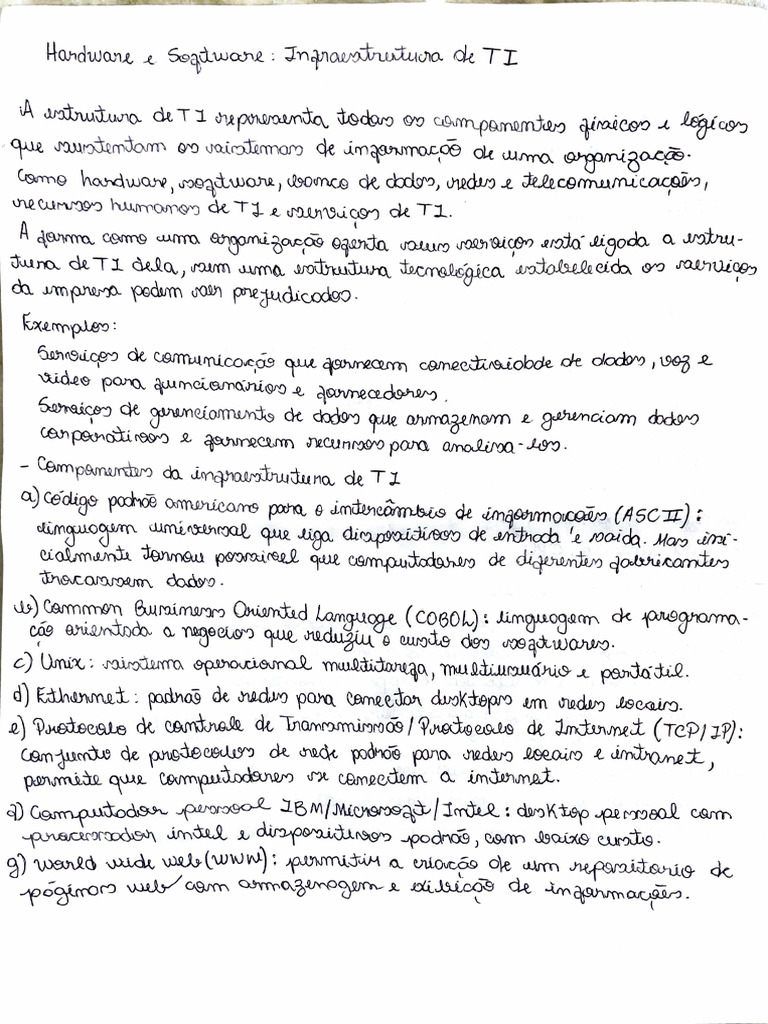 Hardware e Software: Infraestrutura de TI
A estrutura de TI representa todos os componentes físicos e lógicos
que sustentam os sistemas de informação de uma organização.
Como hardware, software, banco de dados, redes e telecomunicações,
recursos humanos de TI e serviços de TI.
A forma como uma organização oferta seus serviços está ligada a estru-
tura de TI dela, sem uma estrutura tecnológica estabelecida os serviços
da empresa podem ser prejudicados.
Exemplos:
Serviços de comunicação que fornecem conectividade de dados, voz e
video para funcionários e fornecedores.
Serviços de gerenciamento de dados que armazenam e gerenciam dados
corporativos e fornecem recursos para analisa-los.
- Componentes da infraestrutura de TI
a) código padrão americano para o intercâmbio de informações (ASCII):
linguagem universal que liga dispositivos de entrada e saida. Mas ini-
cialmente tornou possivel que computadores de diferentes fabricantes
trocassem dados.
b) Common Business Oriented Language (COBOL): linguagem de programa-
ção orientada a negocios que reduziu o custo dos softwares.
c) Unix: sistema operacional multitarefa, multiusuário e portátil.
d) Ethernet: padrão de redes para conectar desktops em redes locais.
e) Protocolo de controle de Transmissão/Protocolo de Internet (TCP/IP):
conjunto de protocolos de rede padrão para redes locais e intranet,
permite que computadores se conectem a internet.
f) Computador pessoal IBM/Microsoft/Intel: desktop pessoal com
processador intel e dispositivos padrão, com baixo custo.
g) world wide web (www): permitiu a criação de um repositorio de
páginas web com armazenagem e exibição de informações.